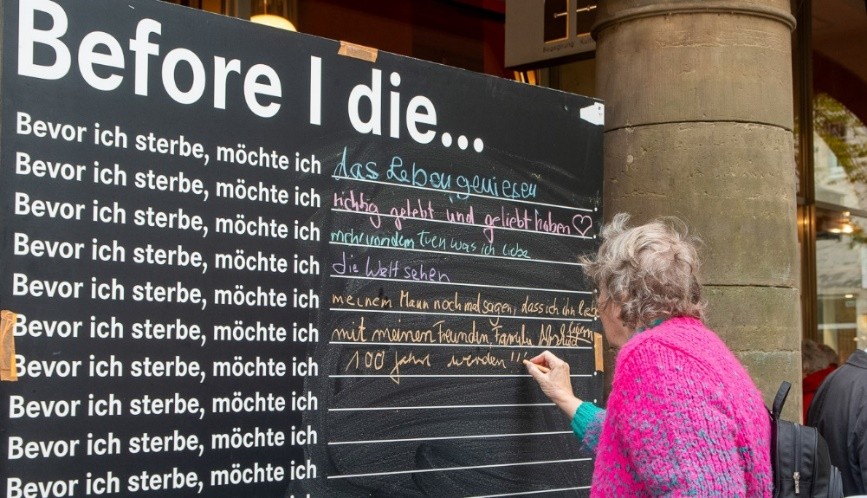 Before I die...
Bevor ich sterbe, möchte ich das Leben genießen
Bevor ich sterbe, möchte ich richtig gelebt und geliebt haben ♡
Bevor ich sterbe, möchte ich mehr von dem tuen was ich liebe
Bevor ich sterbe, möchte ich die Welt sehen
Bevor ich sterbe, möchte ich meinem Mann noch mal sagen, dass ich ihn liebe
Bevor ich sterbe, möchte ich mit meinen Freunden, Familie Abschied feiern
Bevor ich sterbe, möchte ich 100 Jahre werden!!!
Bevor ich sterbe, möchte ich
Bevor ich sterbe, möchte ich
Bevor ich sterbe, möchte ich